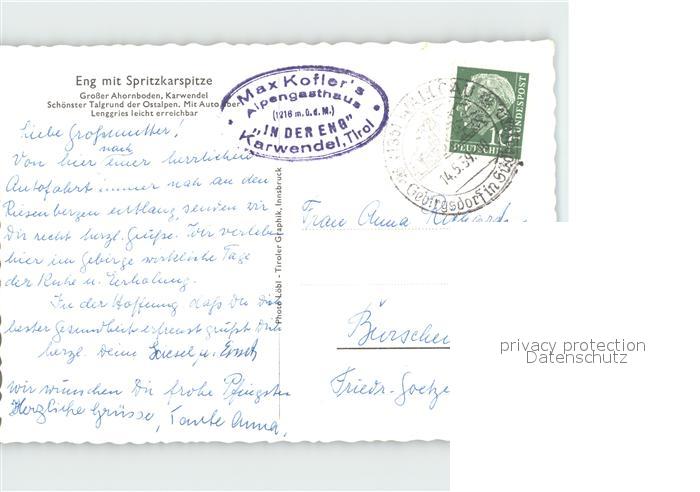 Eng mit Spritzkarspitze
Großer Ahornboden, Karwendel
Schönster Talgrund der Ostalpen. Mit Auto über
Lenggries leicht erreichbar
Max Kofler's
Alpengasthaus
(1216 m. ü. d. M.)
„IN DER ENG"
Karwendel, Tirol
WALLGAU
14.5.59
Gebirgsdorf in
10
DEUTSCHE
BUNDESPOST
Liebe Großmutter!
nach
Von hier einer herrlichen
Autofahrt immer nah an den
Riesenbergen entlang, senden wir
Dir recht herzl. Grüße. Wir verleben
hier im Gebirge wirkliche Tage
der Ruhe u. Erholung.
In der Hoffnung daß Du Dich
bester Gesundheit erfreust grüßt Dich
herzl. Deine Liesel u. Ernst
wir wünschen Dir frohe Pfingsten
Herzliche Grüsse, Tante Anna.
Photo Löbl - Tiroler Graphik, Innsbruck
Frau Anna
Burschei
Friedr.-Goetze
privacy protection
Datenschutz